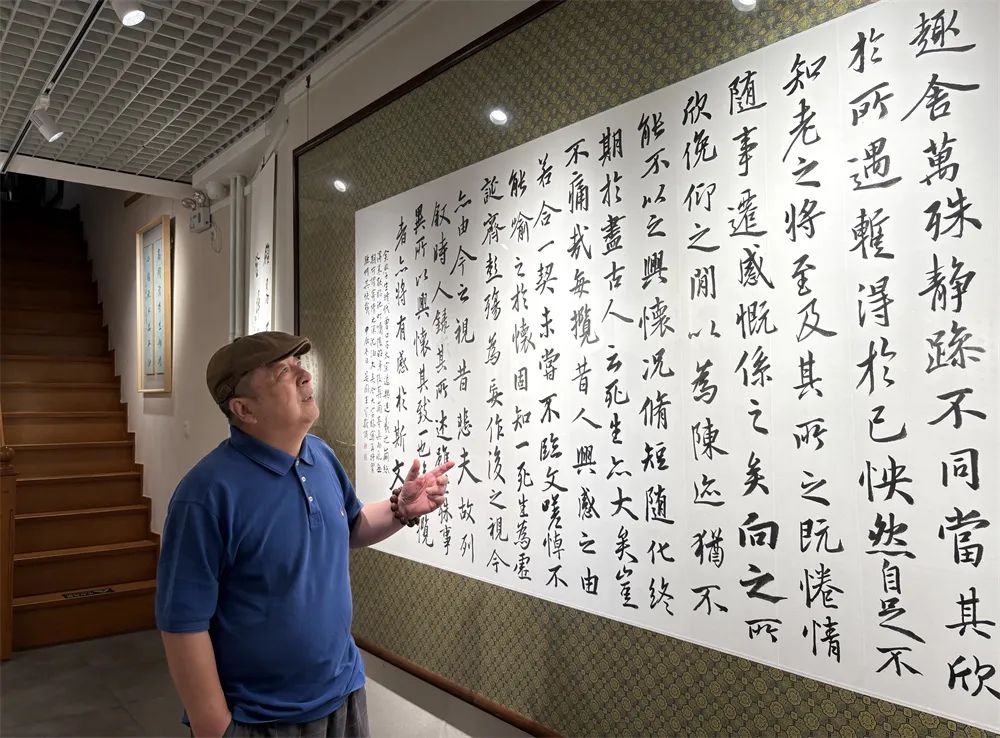 趣舍萬殊静躁不同當其欣
於所遇暫得於己怏然自足不
知老之將至及其所之既惓情
随事遷感慨係之矣向之所
欣俛仰之閒以為陳迹猶不
能不以之興懷况脩短随化終
期於盡古人云死生亦大矣豈
不痛哉每攬昔人興感之由
若合一契未嘗不臨文嗟悼不
能喻之於懷固知一死生為虛
誕齊彭殤為妄作後之視今
亦由今之視昔悲夫故列
叙時人錄其所述雖殊事
異所以興懷其致一也攬
者亦將有感於斯文